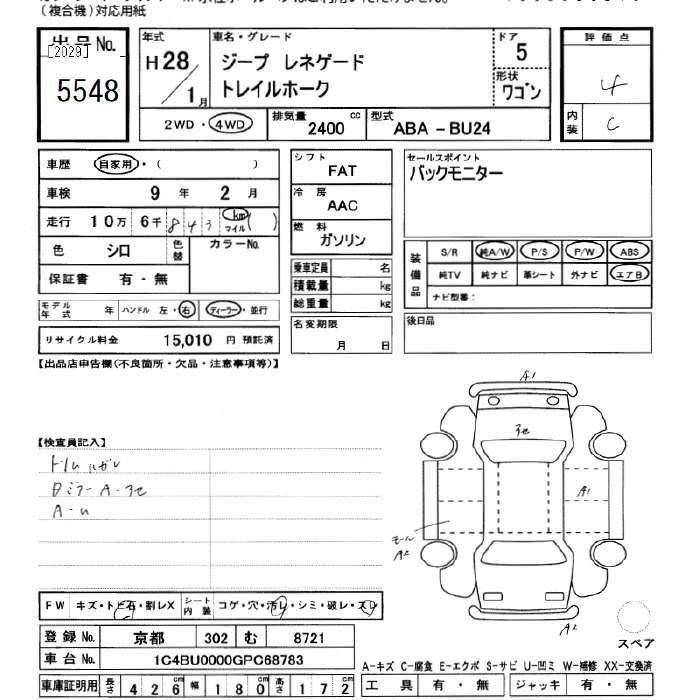 (複合機)対応用紙
出品No.
[2029]
5548
年式
H28/1月
車名・グレード
ジープ レネゲード
トレイルホーク
ドア
5
形状
ワゴン
評価点
4
内装
C
2WD・4WD
排気量 2400 cc
型式 ABA-BU24
車歴 自家用・( )
車検 9年 2月
走行 10万 6千 843 km マイル ( )
色 シロ 色替 カラーNo.
保証書 有・無
シフト
FAT
冷房
AAC
燃料
ガソリン
乗車定員 名
積載量 kg
総重量 kg
セールスポイント
バックモニター
装備品
S/R 純A/W P/S P/W ABS
純TV 純ナビ 革シート 外ナビ エアB
ナビ型番:
モデル年式 年 ハンドル 左・右 ディーラー・並行
リサイクル料金 15,010 円 預託済
名変期限
月 日
後日品
【出品店申告欄(不良箇所・欠品・注意事項等)】
【検査員記入】
A-U
A1
A1
モール
A2
A2
スペア
FW キズ・トビ石・割レX
シート内装 コゲ・穴・汚レ・シミ・破レ・スレ
登録No. 京都 302 む 8721
車台No. 1C4BU0000GPC68783
車庫証明用 長さ 426cm 幅 180cm 高さ 172cm
A-キズ C-腐食 E-エクボ S-サビ U-凹ミ W-補修 XX-交換済
工具 有・無 ジャッキ 有・無